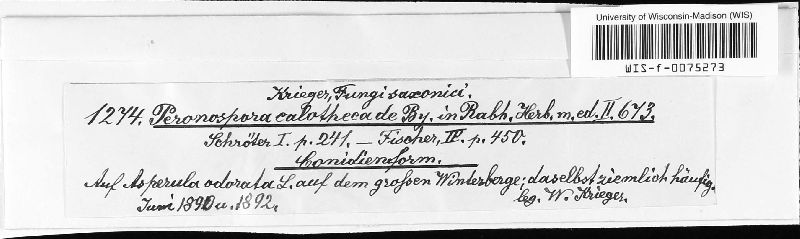 University of Wisconsin-Madison (WIS)
WIS-f-0075273
Krieger, Fungi saxonici.
1274. Peronospora calotheca de By. in Rabh. Herb. m. ed. II. 673.
Schröter I. p. 241. — Fischer, IV. p. 450.
Conidienform.
Auf Asperula odorata L. auf dem großen Winterberge; daselbst ziemlich häufig.
Juni 1890 u. 1892.
leg. W. Krieger.